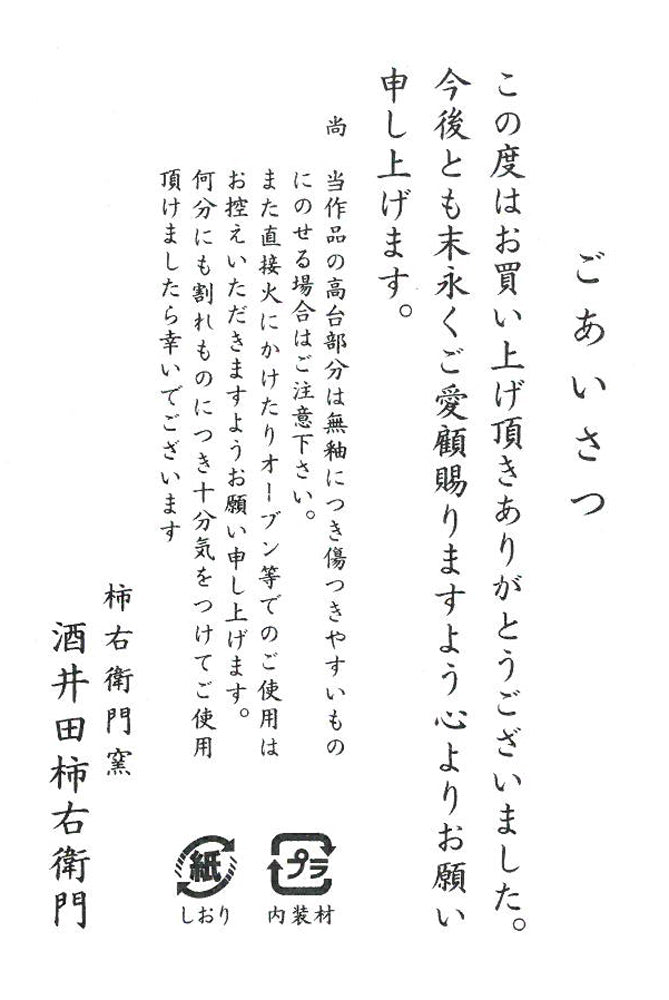 ごあいさつ
この度はお買い上げ頂きありがとうございました。
今後とも末永くご愛顧賜りますよう心よりお願い
申し上げます。
尚　当作品の高台部分は無釉につき傷つきやすいもの
にのせる場合はご注意下さい。
また直接火にかけたりオーブン等でのご使用は
お控えいただきますようお願い申し上げます。
何分にも割れものにつき十分気をつけてご使用
頂けましたら幸いでございます
柿右衛門窯
酒井田柿右衛門
プラ
内装材
紙
しおり